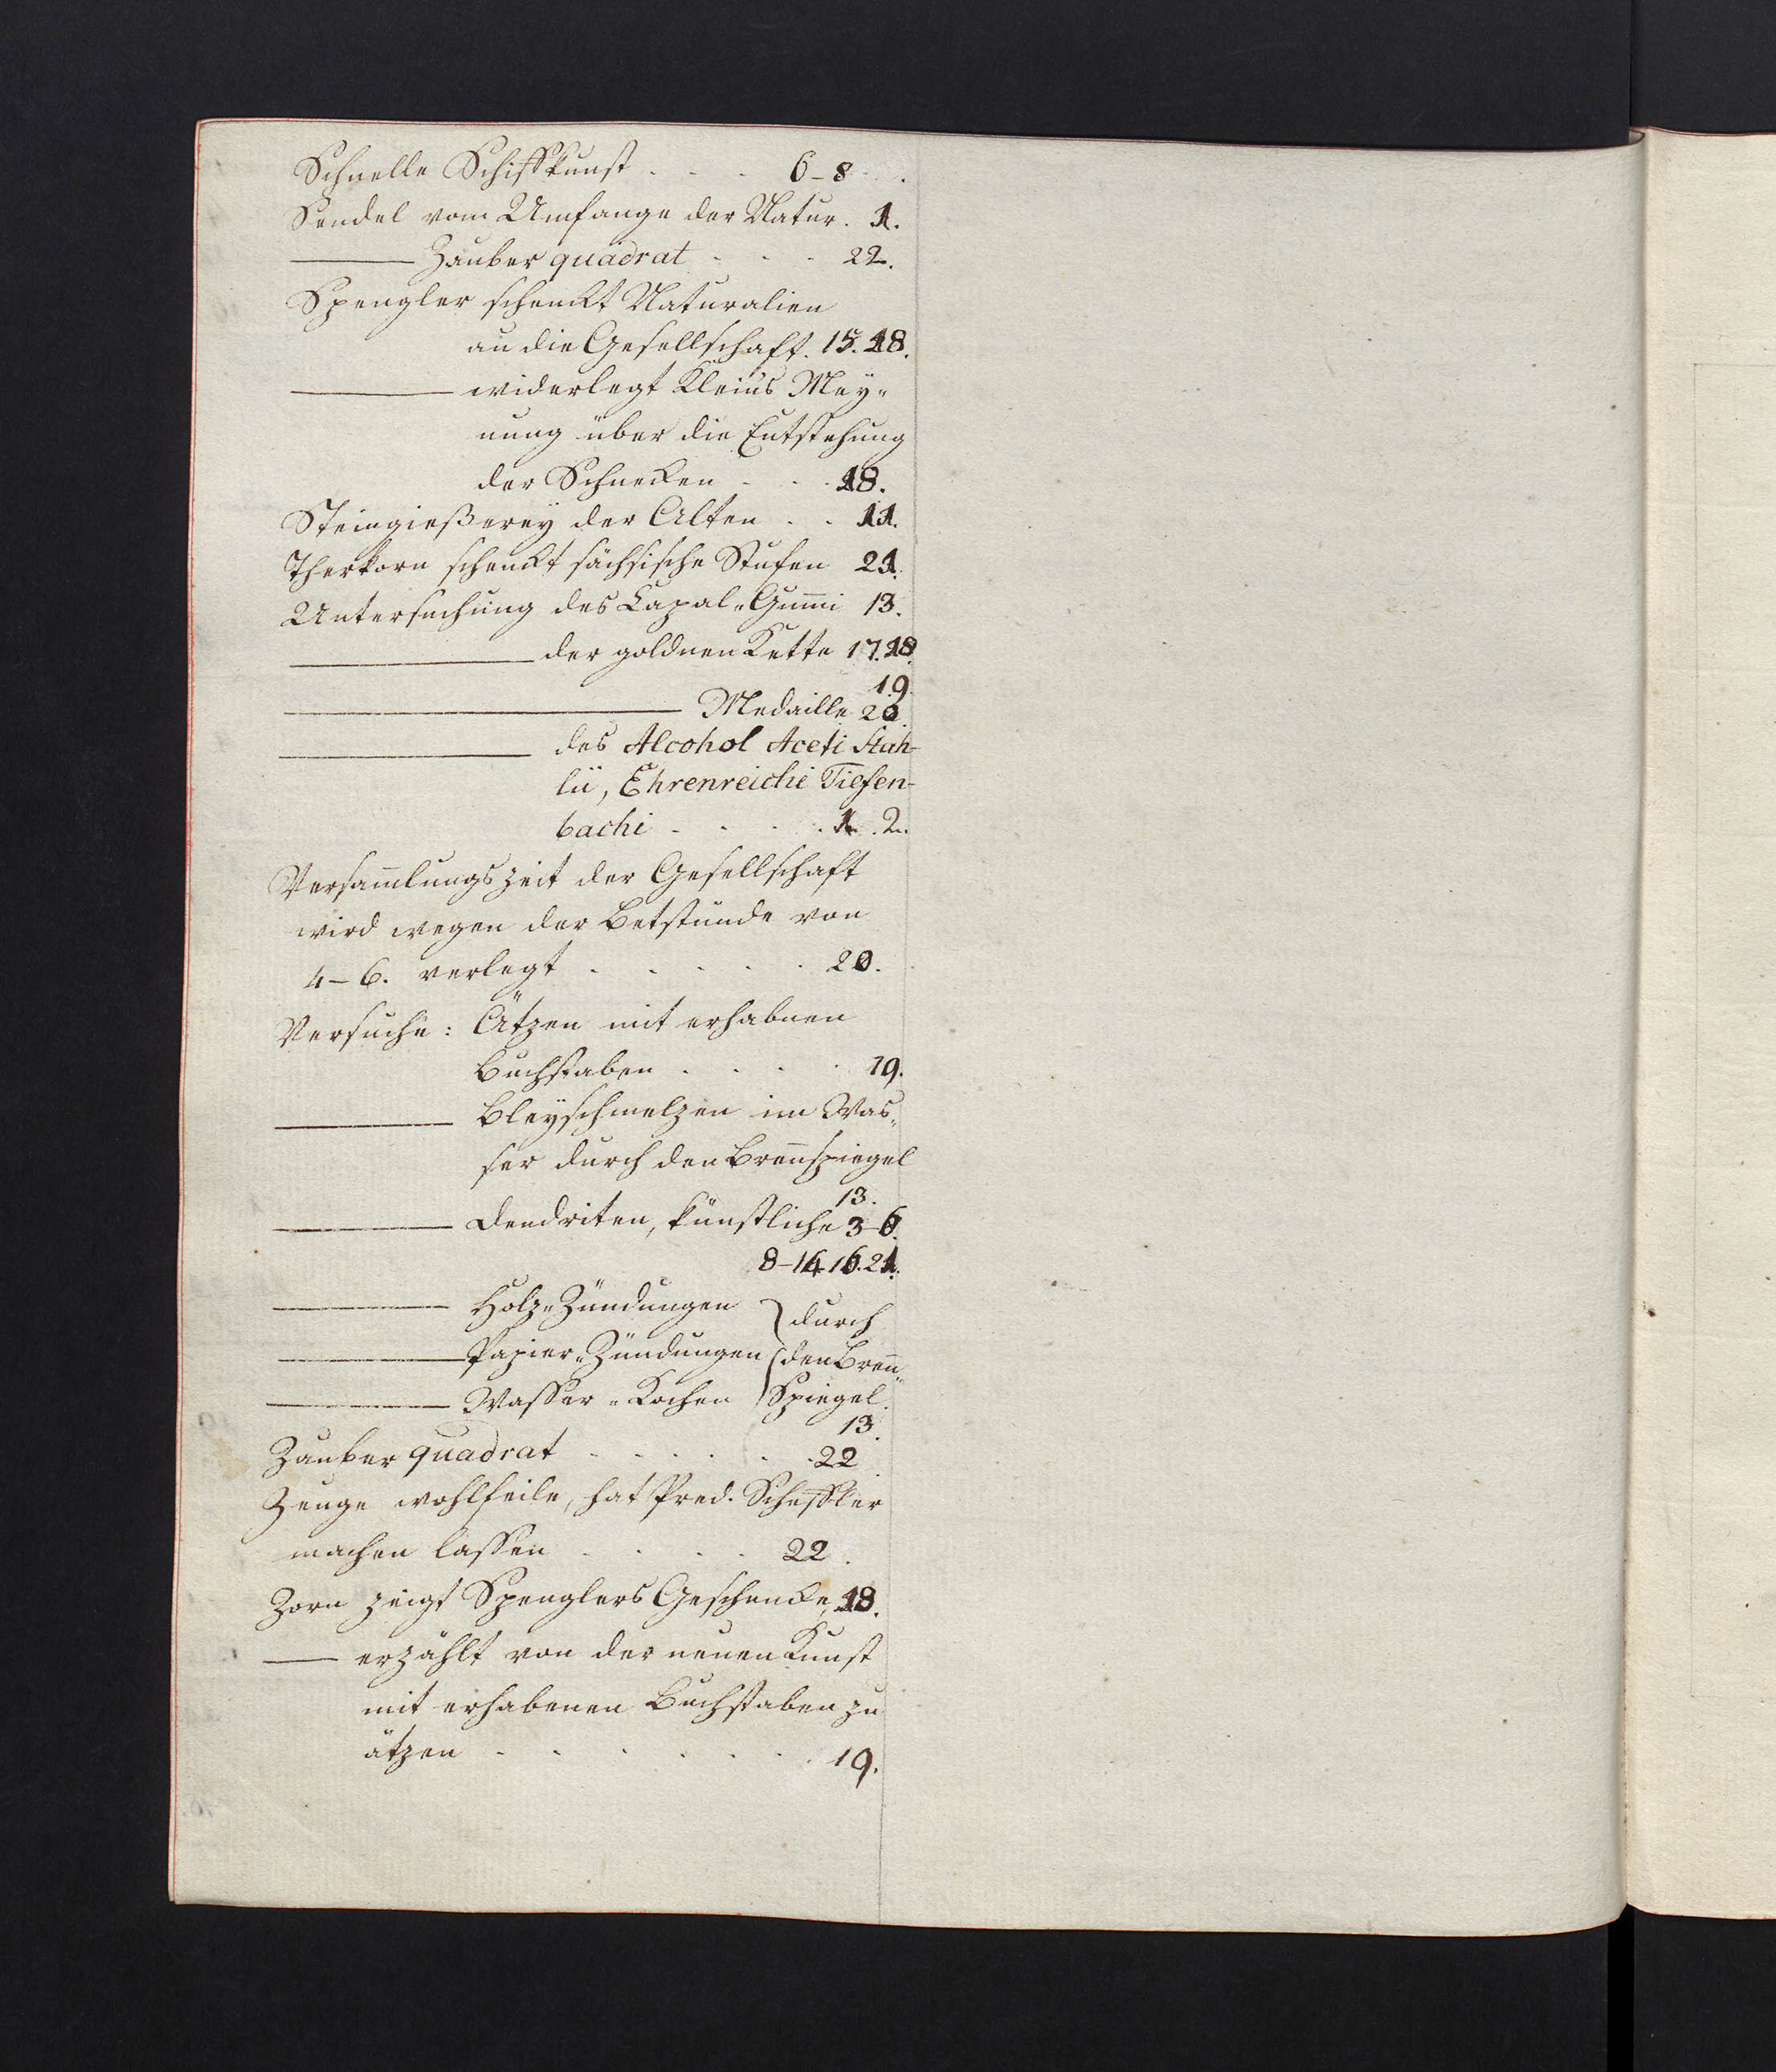 Schnelle Schiffkunst . . . 6–8 .
Sendel vom Umfange der Natur. 1.
——— Zauber quadrat . . . 22.
Spengler schenckt Naturalien
an die Gesellschaft. 15. 18.
——— widerlegt Kleins Mey„
nung über die Entstehung
der Schnecken . . . 18.
Steingießerey der Alten . . 11.
Therkorn schenckt sächsische Stufen 21.
Untersuchung des Capal„Gum̅i 13.
——— der goldnen Kette 17. 18.
19.
——— Medaille 20.
——— des Alcohol Aceti Stah-
lii, Ehrenreichi Tiefen-
bachi . . . . 1. 2.
Versam̅lungszeit der Gesellschaft
wird wegen der Betstunde von
4–6. verlegt . . . . . 20.
Versuche: Ätzen mit erhabnen
Buchstaben . . . . 19.
——— Bleyschmelzen im Was„
ser durch den Bren̅spiegel
13.
——— Dendriten, künstliche 3–6.
8–14 16. 21.
——— Holz„Zündungen } durch
——— Papier„Zündungen den Bren̅„
——— Wasser„Kochen Spiegel.
13.
Zauber quadrat . . . . . 22
Zeuge wohlfeile, hat Pred. Scheffler
machen lassen . . . . 22.
Zorn zeigt Spenglers Geschencke, 18.
—— erzählt von der neuen Kunst
mit erhabenen Buchstaben zu
ätzen . . . . . . 19.